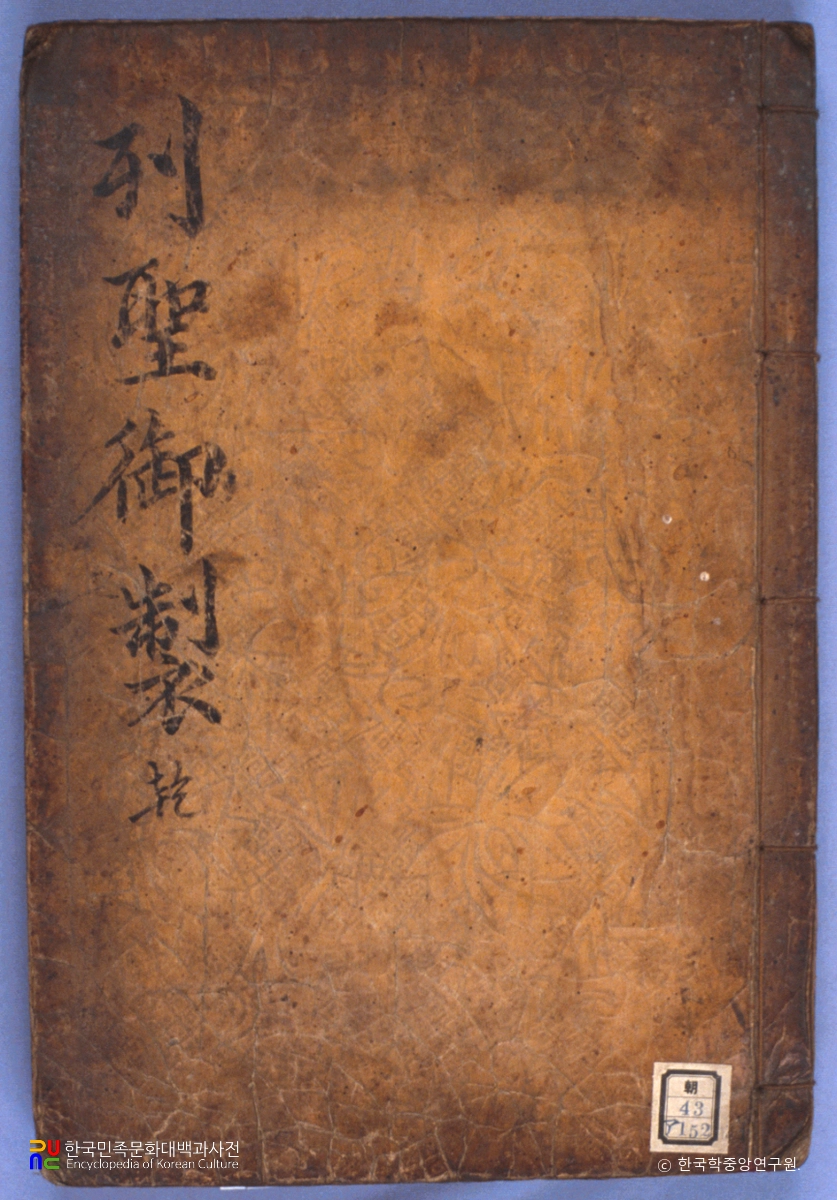 列聖御製 乾
朝
43
ア152
한국민족문화대백과사전
Encyclopedia of Korean Culture
© 한국학중앙연구원